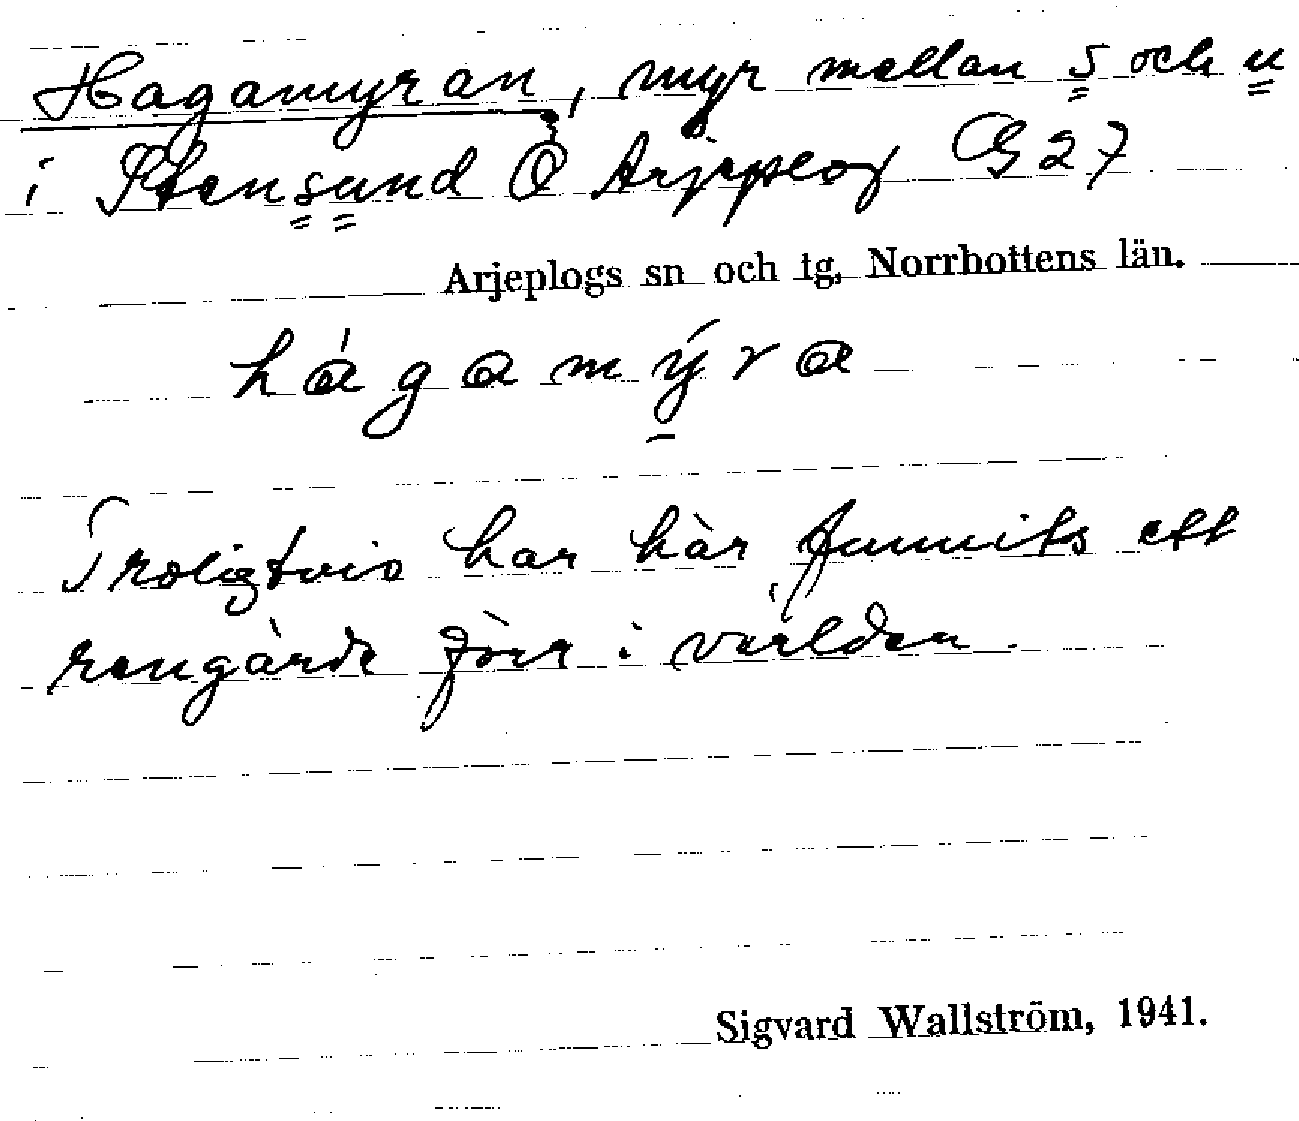 Hagamyran, myr mellan s och u
i Stensund Ö Arjeplog G 27
Arjeplogs sn och tg, Norrbottens län.
hágamýra
Troligtvis har här funnits ett
rengärde förr i världen.
Sigvard Wallström, 1941.